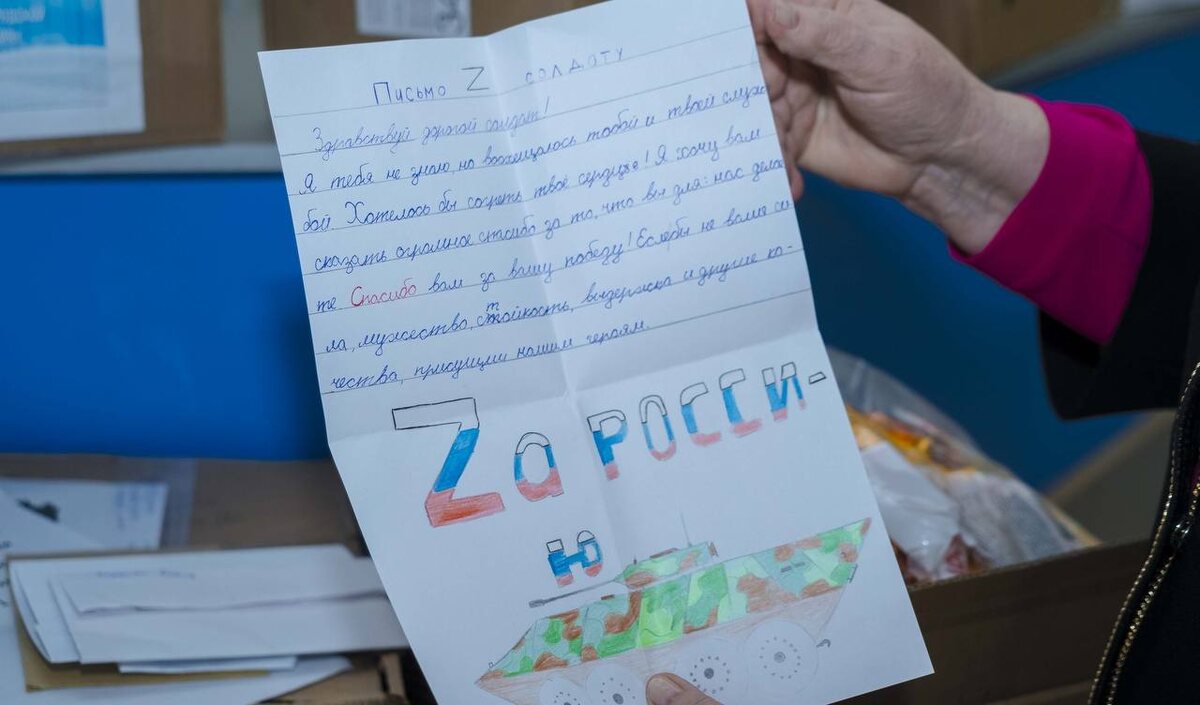 Письмо Z солдату
Здравствуй дорогой солдат!
Я тебя не знаю, но восхищаюсь тобой и твоей служ
бой Хотелось бы согреть твоё сердце! Я хочу вам
сказать огромное спасибо за то, что вы для нас делае
те Спасибо вам за вашу победу! Еслебы не ваша си
ла, мужество, стойкость, выдержка и другие ка-
чества, присущими нашим героям.
Zа РОССИ-
Ю